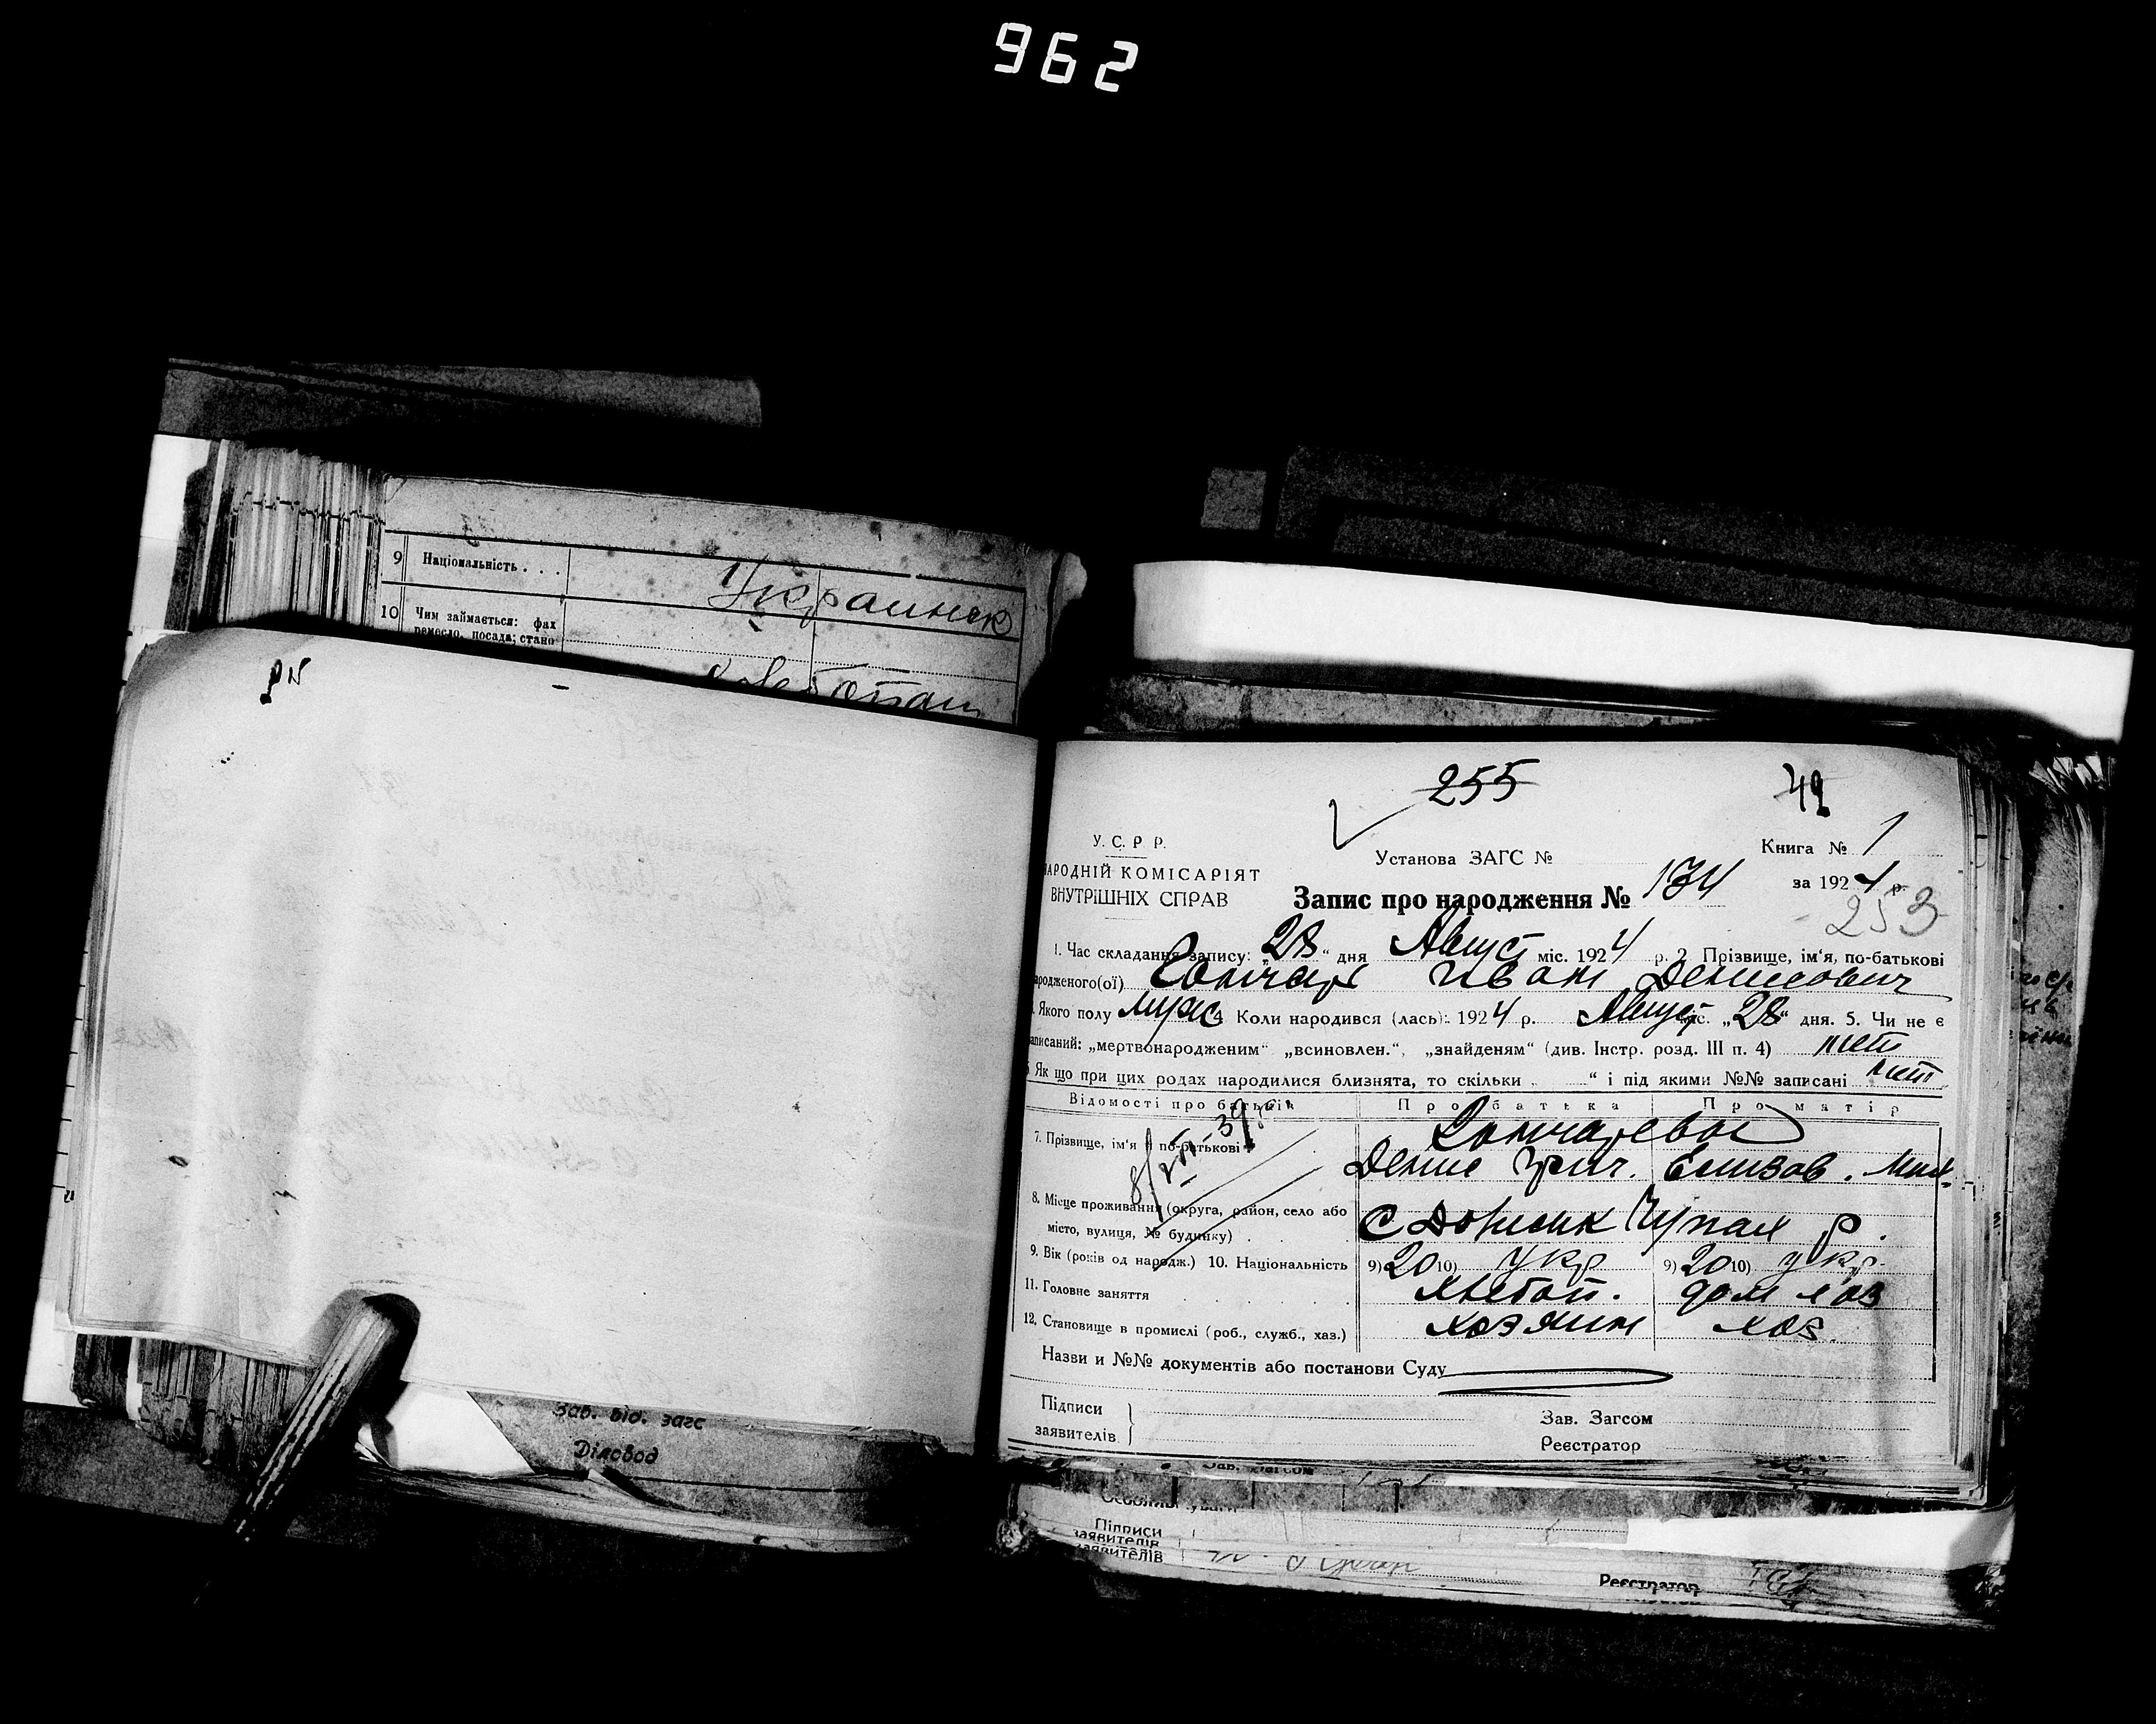 962
9 Національність . . . Украинск
10 Чим займається: фах
ремесло, посада; стано-
хлебопаш
Зав. від. загс
Діловод
255
42
У. С. Р. Р.
НАРОДНІЙ КОМІСАРІЯТ
ВНУТРІШНІХ СПРАВ
Установа ЗАГС №
Книга № 1
Запис про народження № 134
за 1924 р.
253
1. Час складання запису: „28“ дня Август міс. 1924 р. 2 Прізвище, ім'я, по-батькові
народженого(ої) Гончар Иван Денисович
Якого полу муж 4 Коли народився (лась): 1924 р. Август міс. „28“ дня. 5. Чи не є
записаний: „мертвонародженим“ „всиновлен.“, „знайденям“ (див. Інстр. розд. III п. 4) нет
6 Як що при цих родах народилися близнята, то скільки „ “ і під якими №№ записані нет
Відомості про батьків Про батька Про матір
Гончаревы
7. Прізвище, ім'я й по-батькові Денис Григ. Елизав. Мих.
8. Місце проживання (округа, район, село або
місто, вулиця, № будинку) . . С Чупах р.
9. Вік (років од народж.) 10. Національність 9) 20 10) укр 9) 20 10) укр.
11. Головне заняття хлебоп. дом хоз
12. Становище в промислі (роб., служб., хаз.) хозяин хоз.
Назви и №№ документів або постанови Суду
Підписи
заявителів
Зав. Загсом
Реєстратор
Зав. Загсом
Підписи
заявителів
заявителів
Реєстратор